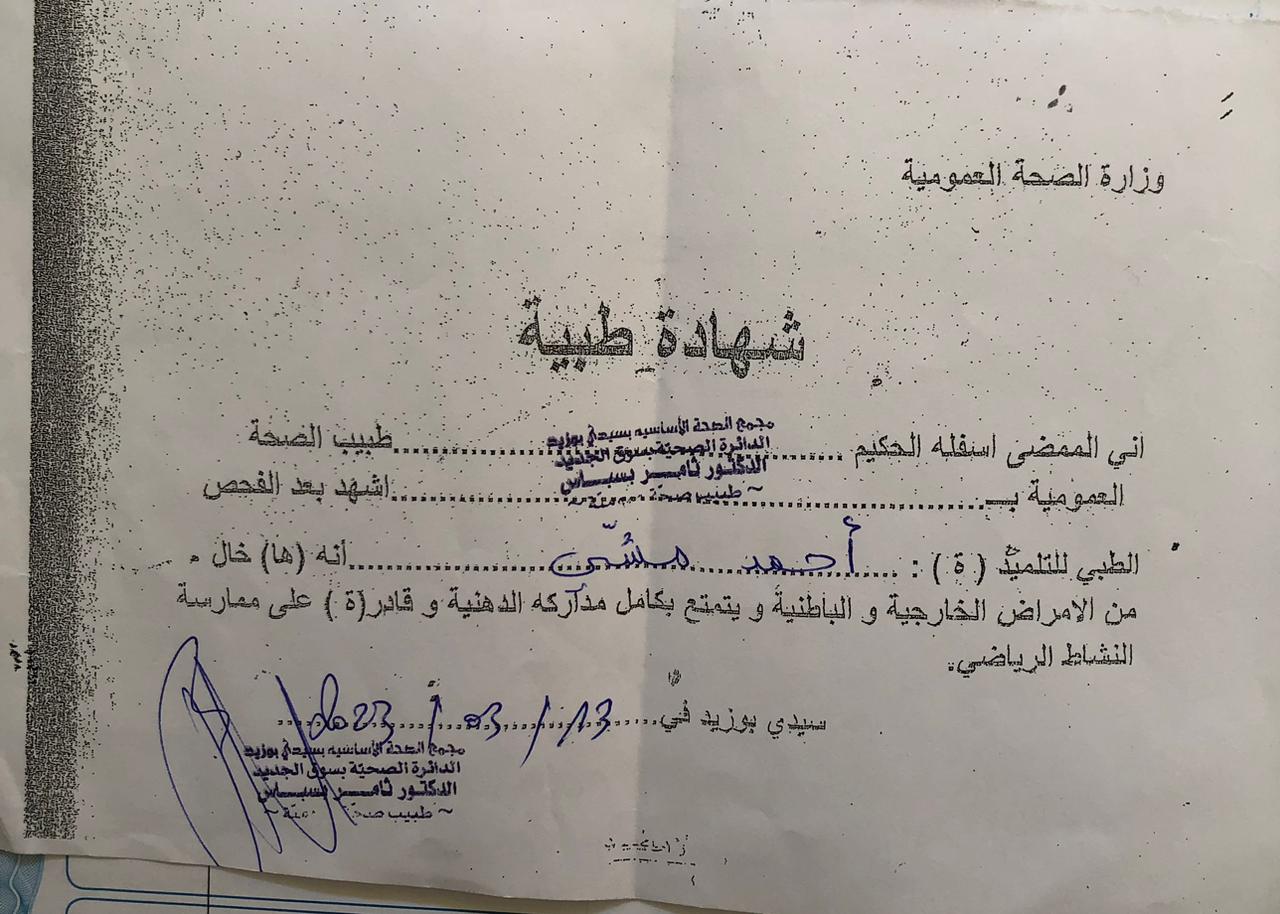 وزارة الصحة العمومية
شهادة طبية
اني الممضى اسفله الحكيم ........................ طبيب الصحة
مجمع الصحة الأساسية بسيدي بوزيد
الدائرة الصحيّة بسوق الجديد
الدكتور ثامر بسباس
~ طبيب صحة
العمومية بـ ........................ اشهد بعد الفحص
الطبي للتلميذ ( ة ) : أحمد مشّي أنه (ها) خال .
من الامراض الخارجية و الباطنية و يتمتع بكامل مداركه الدهنية و قادر(ة ) على ممارسة
النشاط الرياضي.
سيدي بوزيد في 13 / 03 / 2023
مجمع الصحة الأساسية بسيدي بوزيد
الدائرة الصحيّة بسوق الجديد
الدكتور ثامر بسباس
~ طبيب صحة